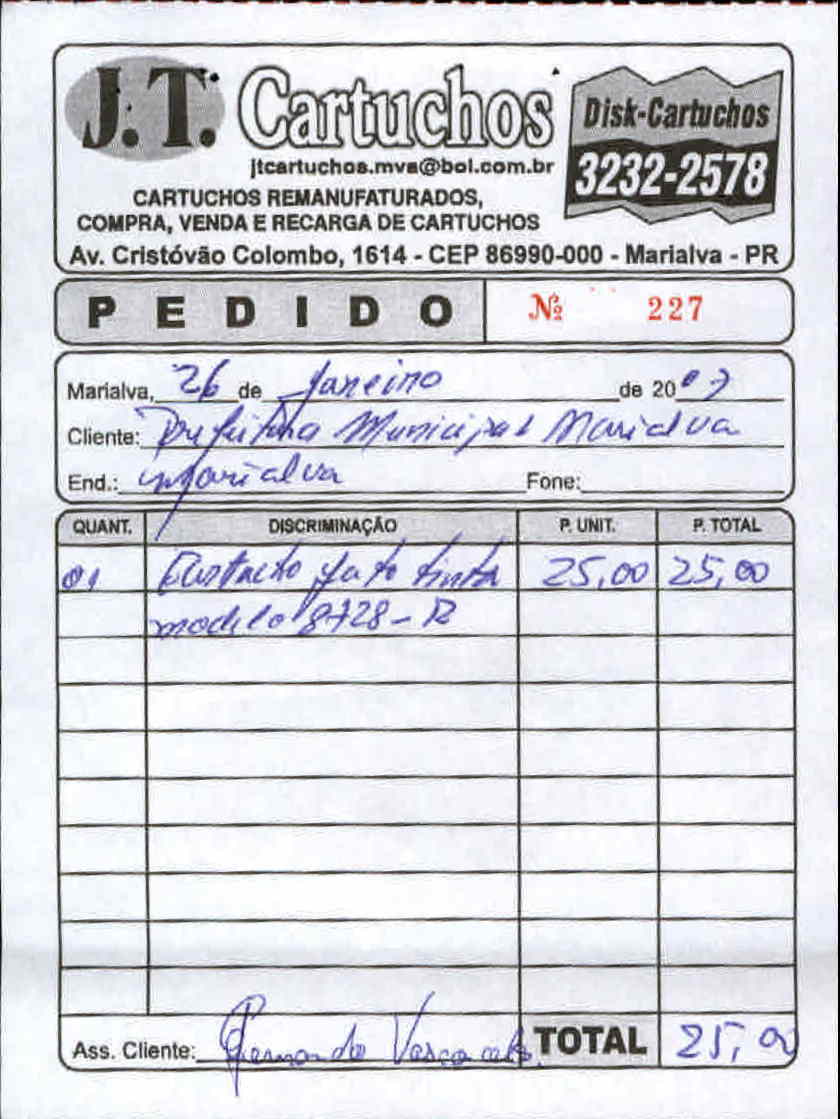 J.T. Cartuchos
Disk-Cartuchos
jtcartuchos.mva@bol.com.br
3232-2578
CARTUCHOS REMANUFATURADOS,
COMPRA, VENDA E RECARGA DE CARTUCHOS
Av. Cristóvão Colombo, 1614 - CEP 86990-000 - Marialva - PR
PEDIDO Nº 227
Marialva, 26 de Janeiro de 2007
Cliente: Prefeitura Municipal Marialva
End.: Marialva Fone:
QUANT. DISCRIMINAÇÃO P. UNIT. P. TOTAL
01 Cartucho jato tinta 25,00 25,00
modelo 8728-
Ass. Cliente: Fernando TOTAL 25,00